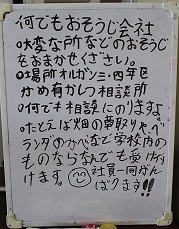 何でもおそうじ会社
○大変な所などのおそうじ
をおまかせください。
○場所オルガン三・四年区
かめ有かしつ相談所
○何でも相談にのりますよ
○たとえば畑の草取りやべ
ランダのかべなど学校内の
ものならなんでも受け付
けます。社員一同がん
ばります!!